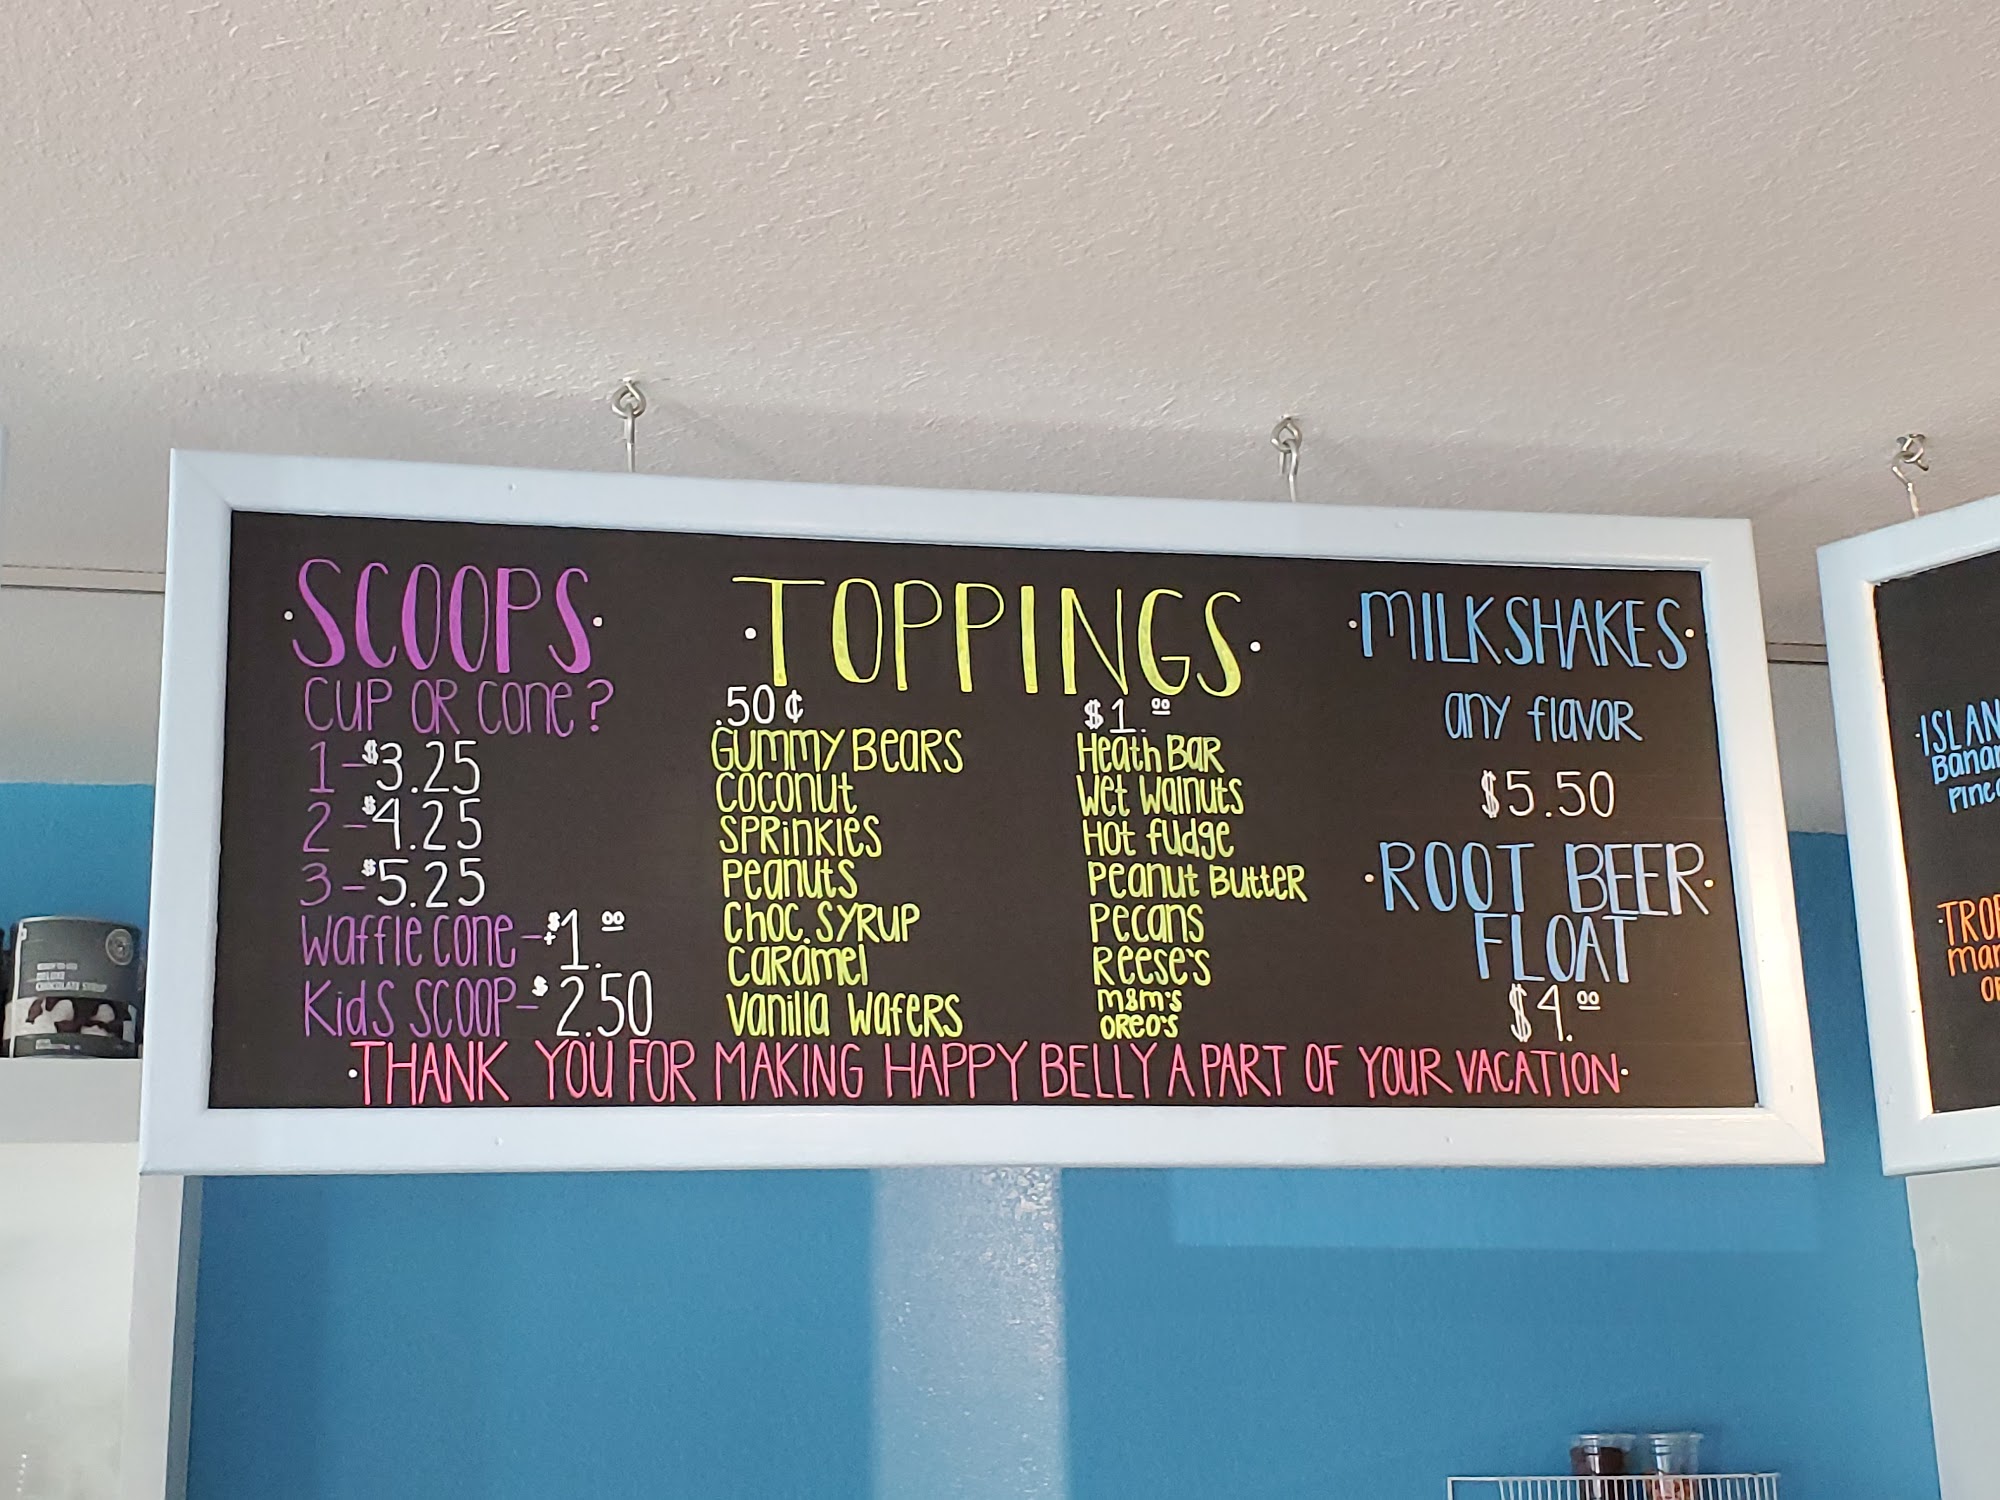 ·SCOOPS·
CUP OR CONE?
1-$3.25
2-$4.25
3-$5.25
Waffle cone-+$1.00
Kids SCOOP-$2.50
·TOPPINGS·
.50¢
Gummy Bears
Coconut
Sprinkles
Peanuts
Choc. Syrup
Caramel
Vanilla Wafers
$1.00
Heath Bar
Wet Walnuts
Hot fudge
Peanut Butter
Pecans
Reese's
M&M's
Oreo's
·MILKSHAKES·
any flavor
$5.50
·ROOT BEER·
FLOAT
$4.00
·THANK YOU FOR MAKING HAPPY BELLY A PART OF YOUR VACATION·
DELUXE
CHOCOLATE SYRUP